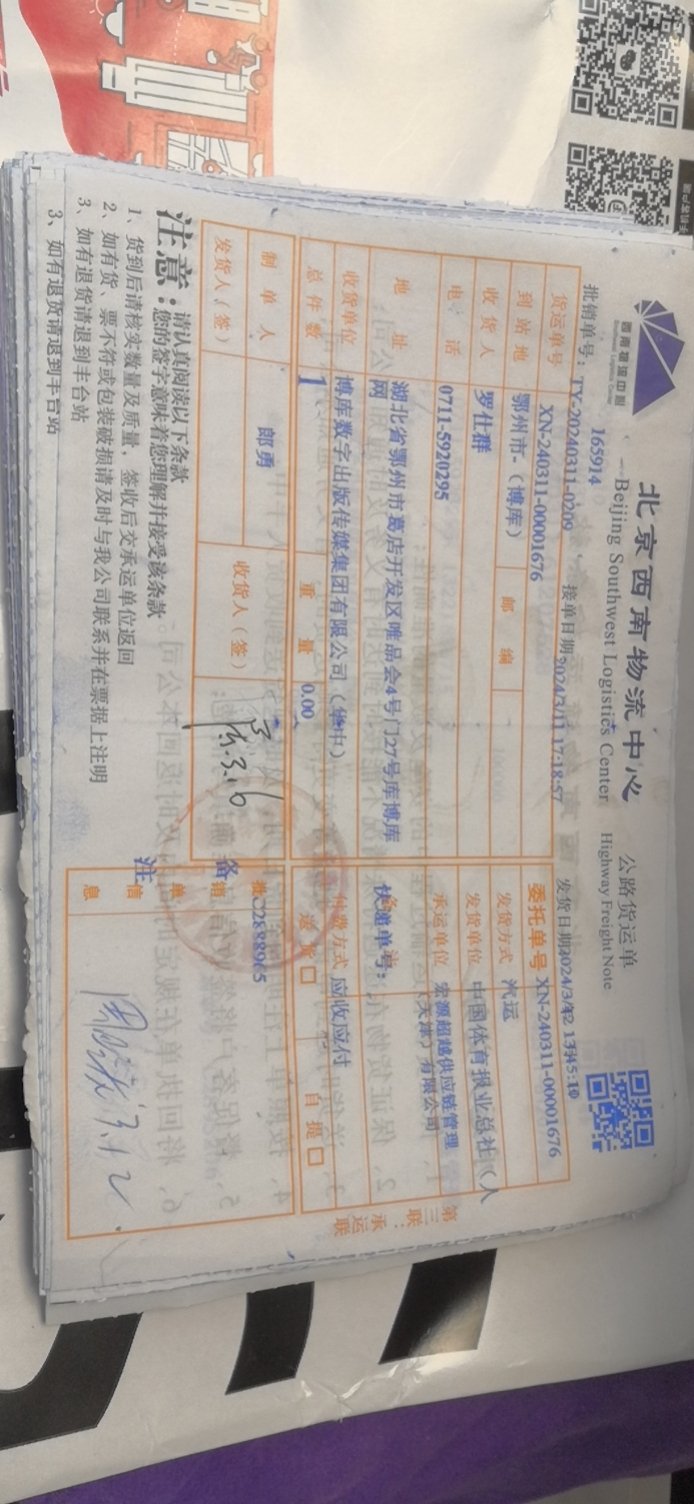 西南物流中心
Southwest Logistics Center
北京西南物流中心 公路货运单
Beijing Southwest Logistics Center Highway Freight Note
165914
批销单号：TY-20240311-0209 接单日期 2024/3/11 17:18:57 发货日期
货运单号 XN-240311-00001676 委托单号 XN-240311-00001676
到站地 鄂州市-（博库） 邮编 发货方式 汽运
收货人 罗仕群 发货单位 中国体育报业总社（人
电话 0711-5920295 承运单位 宏源超越供应链管理
天津）有限公司
地址 湖北省鄂州市葛店开发区唯品会4号门27号库博库
网
快递单号：
收货单位 博库数字出版传媒集团有限公司（华中） 付费方式 应收应付
总件数 1 重量 0.00 送货□ 自提□
制单人 郎勇
发货人（签） 收货人（签） 3.16
批销单信息 C2888965
备注
3.12
第三联：承运联
注意：请认真阅读以下条款
您的签字意味着您理解并接受该条款
1、货到后请核实数量及质量，签收后交承运单位返回
2、如有货、票不符或包装破损请及时与我公司联系并在票据上注明
3、如有退货请退到丰台站
3、如有退货请退到丰台站